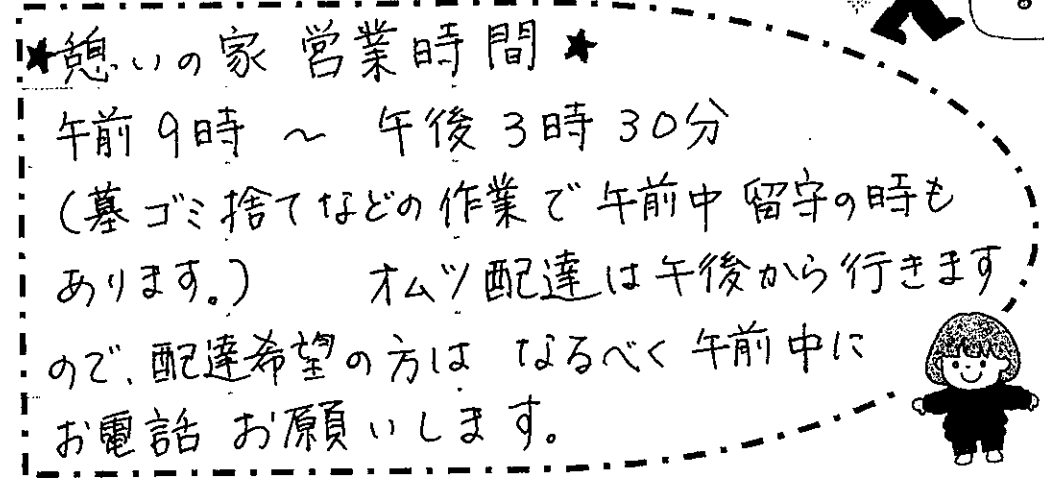 ★憩いの家 営業時間★
午前9時 ~ 午後3時30分
(墓ゴミ捨てなどの作業で午前中留守の時も
あります。) オムツ配達は午後から行きます
ので、配達希望の方は なるべく午前中に
お電話 お願いします。